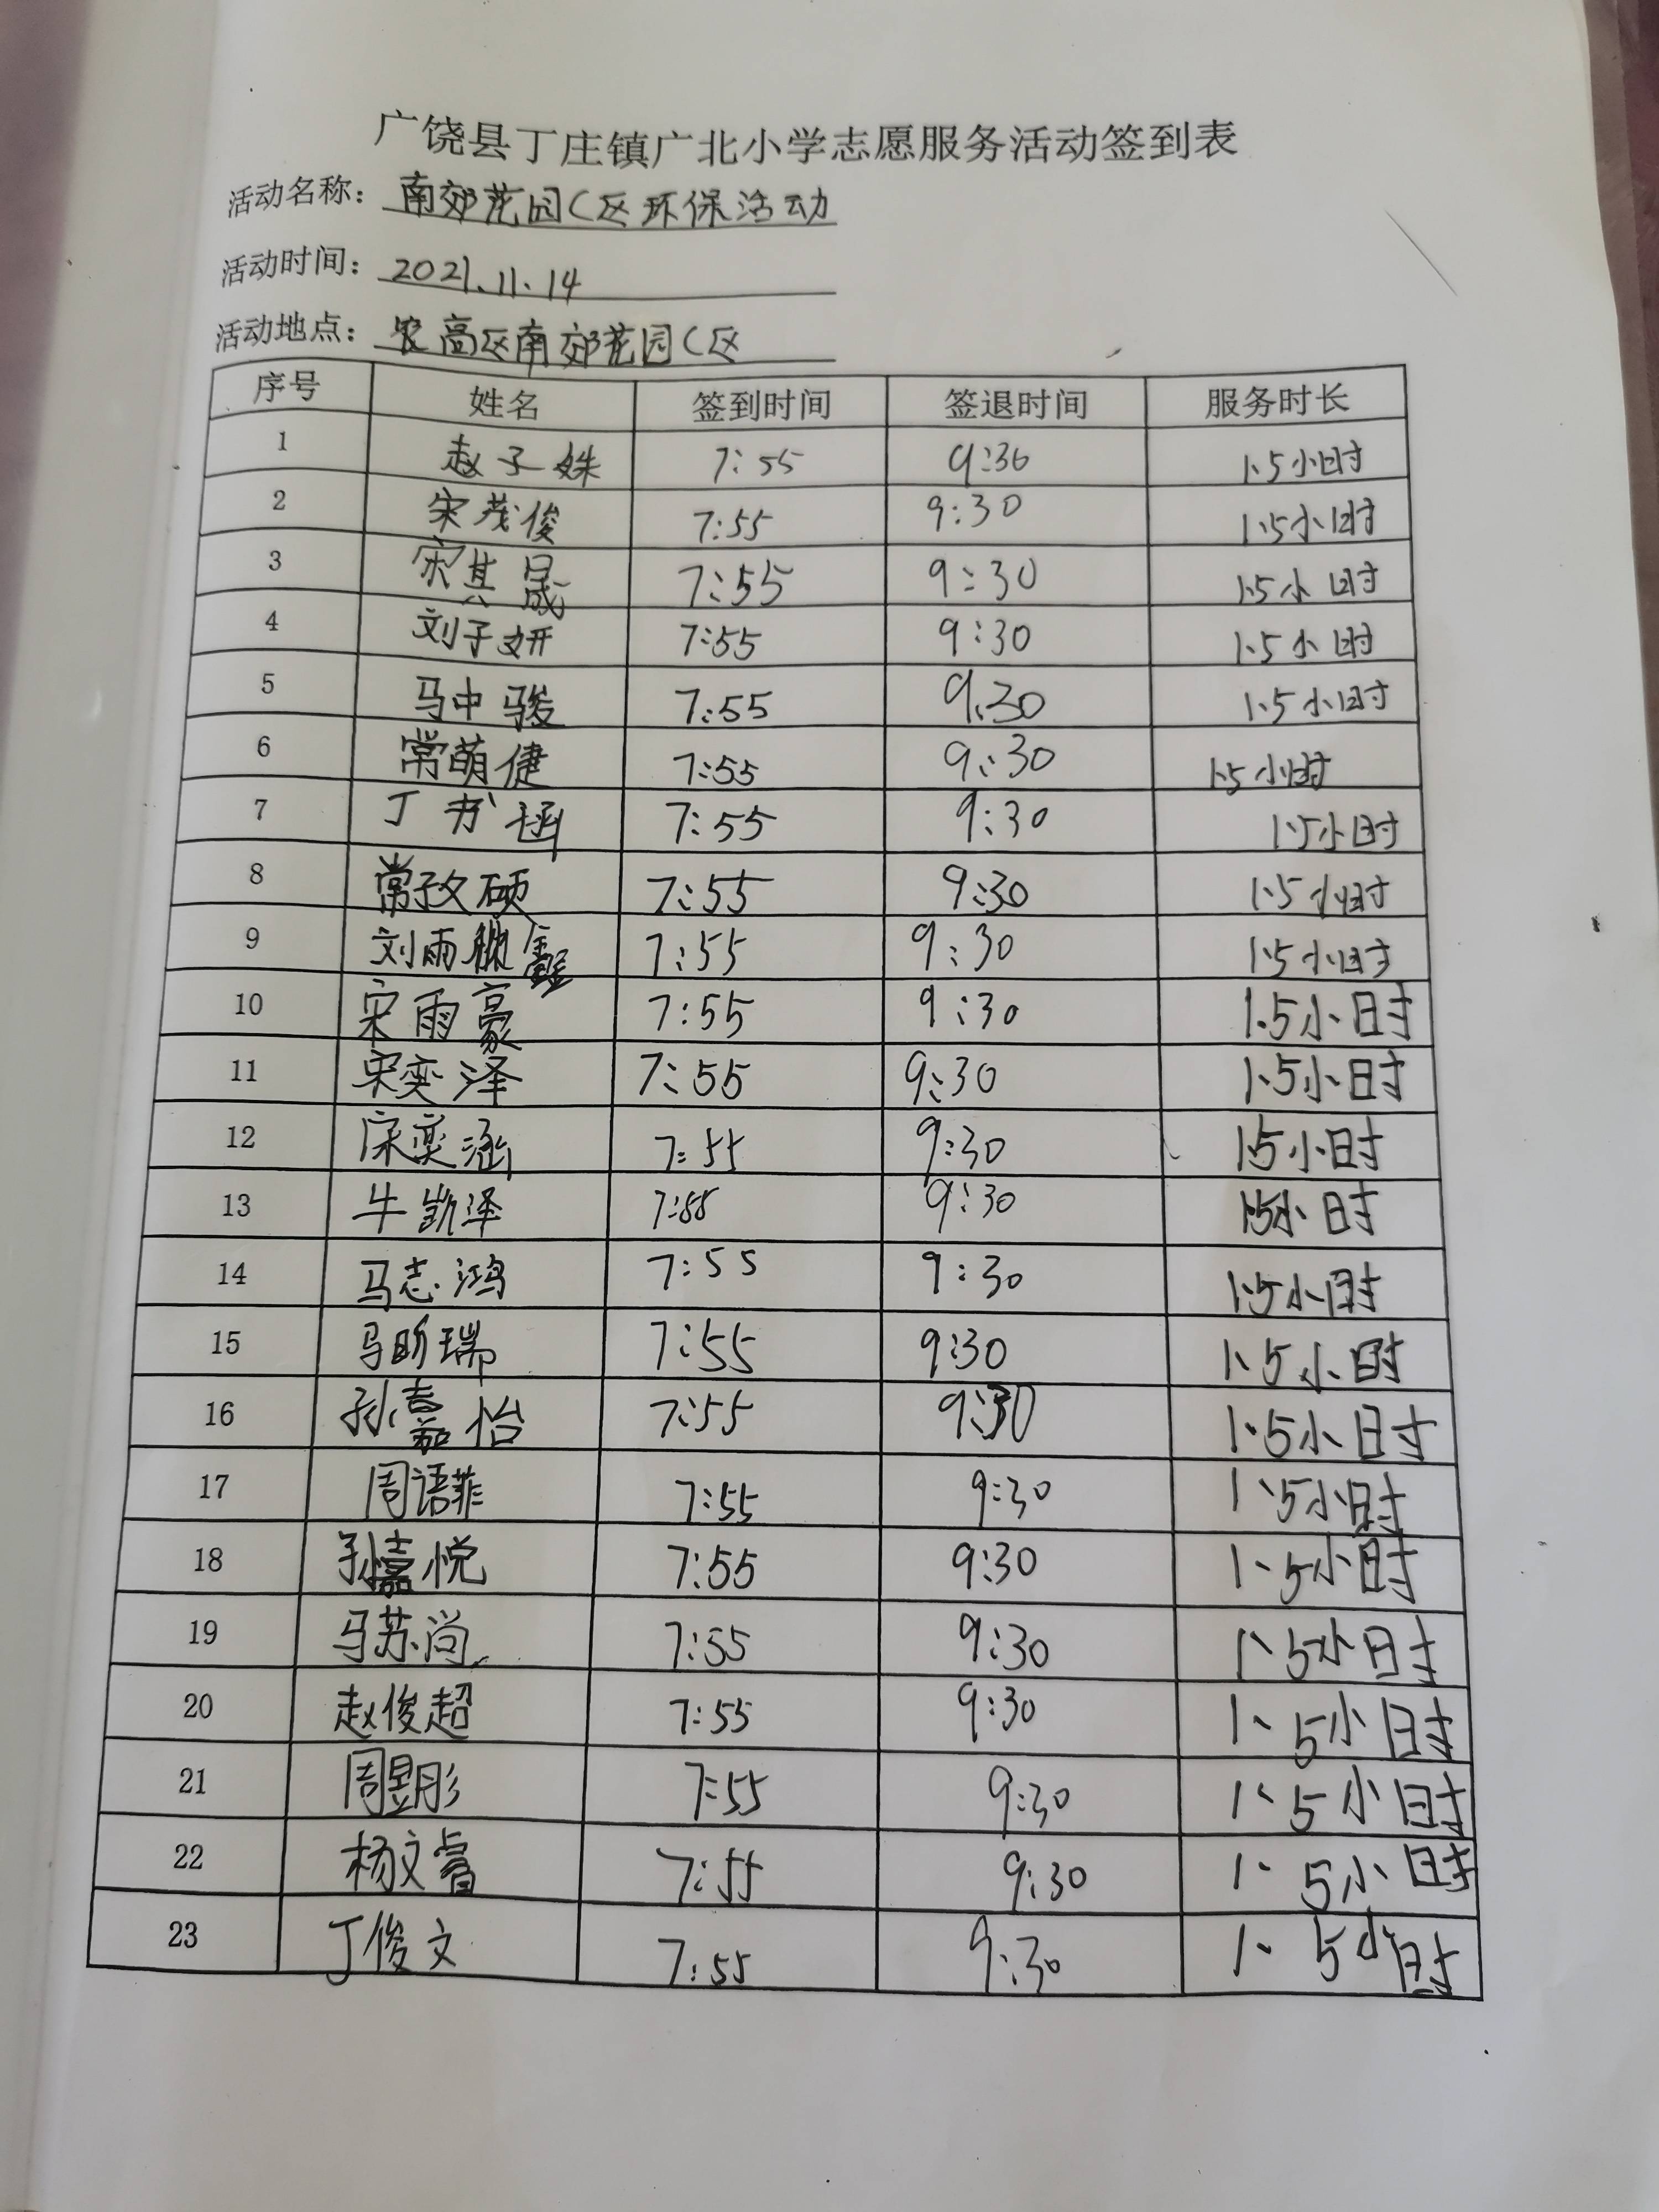 广饶县丁庄镇广北小学志愿服务活动签到表
活动名称：南郊花园C区环保活动
活动时间：2021.11.14
活动地点：农高区南郊花园C区
序号 姓名 签到时间 签退时间 服务时长
1 赵子姝 7:55 9:30 1.5小时
2 宋茂俊 7:55 9:30 1.5小时
3 宋其晟 7:55 9:30 1.5小时
4 刘子妍 7:55 9:30 1.5小时
5 马中骏 7:55 9:30 1.5小时
6 常萌倢 7:55 9:30 1.5小时
7 丁书涵 7:55 9:30 1.5小时
8 常孜硕 7:55 9:30 1.5小时
9 刘雨鑫 7:55 9:30 1.5小时
10 宋雨豪 7:55 9:30 1.5小时
11 宋奕泽 7:55 9:30 1.5小时
12 宋奕涵 7:55 9:30 1.5小时
13 牛凯泽 7:55 9:30 1.5小时
14 马志鸿 7:55 9:30 1.5小时
15 马昕瑞 7:55 9:30 1.5小时
16 孙嘉怡 7:55 9:30 1.5小时
17 周语菲 7:55 9:30 1.5小时
18 孙嘉悦 7:55 9:30 1.5小时
19 马苏尚 7:55 9:30 1.5小时
20 赵俊超 7:55 9:30 1.5小时
21 周昱彤 7:55 9:30 1.5小时
22 杨文睿 7:55 9:30 1.5小时
23 丁俊文 7:55 9:30 1.5小时